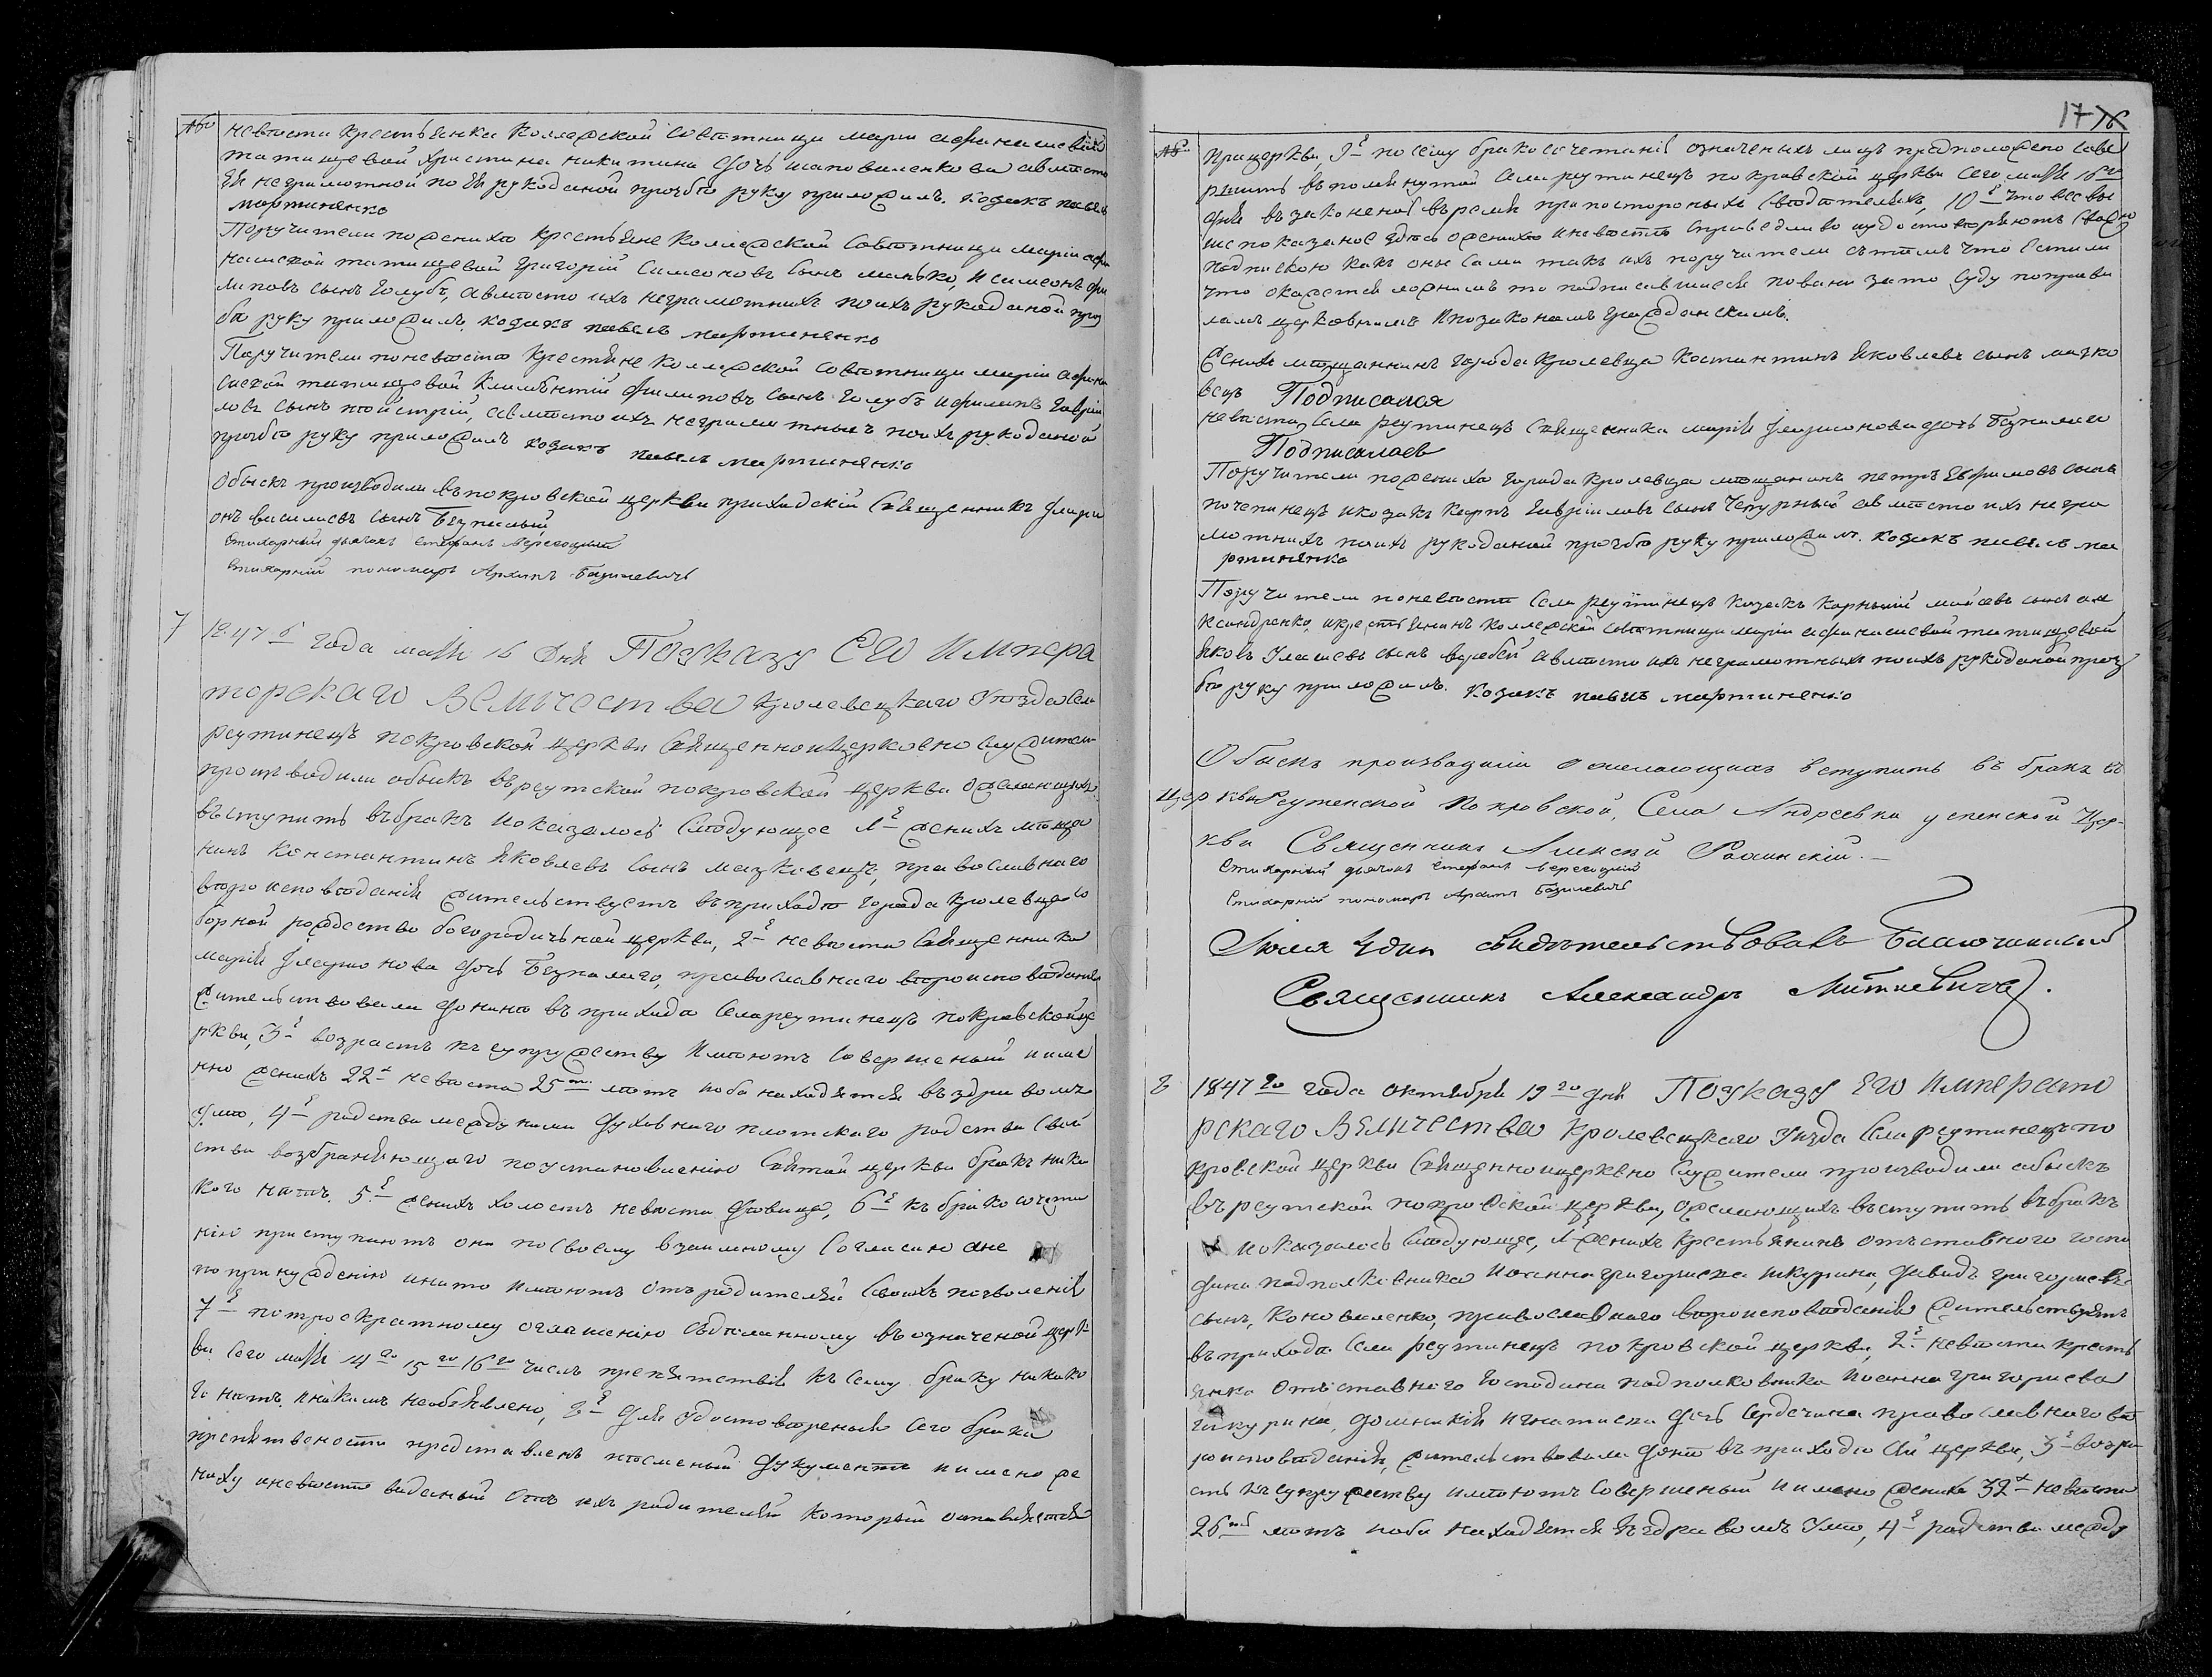 №
невѣсти крестьянка Коллежской Совѣтници маріи афанасіевой
татищевой христина никитина дочь шаповаленкова авмѣсто
ея неграмотной по ея рукоданой прозбѣ руку приложилъ. козакъ павелъ
мартиненко
Поручители поженихѣ крестьяне Коллежской Совѣтници маріи афа
насіевой татищевой Григорій Симеоновъ Сынъ манько, и симеонъ фи
липовъ сынъ Голубъ, авмѣсто ихъ неграмотнихъ поихъ рукоданой проз
бѣ руку приложилъ, козакъ павелъ мартиненко
Поручители поневѣстѣ крестяне Коллежской Совѣтници маріи афана
сіевой татищевой Климентій Филиповъ Сынъ Голубъ и филипъ Гаврі
ловъ сынъ авмѣсто ихъ неграмотныхъ поихъ рукоданой
прозбѣ руку приложилъ козакъ павелъ мартиненко
Обыскъ производили въ покровской церкви приходскій Священникъ Флари
онъ василіевъ Сынъ Безпалый
Стихарный дьячокъ Стефанъ Вересоцкий
Стихарній пономарь Архипъ Базилевичъ
7
1847 года маія 16 дня По указу ЕГО Импера
торскаго Величества Кролевецкаго Уѣзда Села
реутинецъ покровской церкви Священноицерковно служители
производили обыскъ въ реутской покровской церкви ожелающихъ
въступить въбракъ иоказалось Слѣдующее 1е женихъ мѣща
нинъ Константинъ Яковлевъ Сынъ мачковецъ, православнаго
вѣроисповѣданія жительствуетъ въприходѣ города Кролевца со
борной рождество богородичьной церкви, 2е невѣста Священника
марія Фларіонова дочь Безпалаго, православнаго вѣроисповѣданія
жительствовала донинѣ въ приходѣ Села реутинецъ покровской це
ркви, 3е возрастъ къ супружеству Имѣютъ Совершеный имя
нно женихъ 22х невѣста 25ти лѣтъ иоба находятся въ здравомъ
умѣ, 4е родства между ними духовнаго плотскаго родства Свой
ства возбраняющаго поустановленію Святой церкви бракъ ника
кого нѣтъ. 5е женихъ холостъ невѣста дѣвица, 6е къ бракосочета
нію приступаютъ они посвоему взаимному Согласію ане
попринужденію инато имѣютъ Отъ родителей Своихъ позволеніе
7е потроекратному оглашенію Здѣланному въозначеной церк
ви Сего маія 14го 15го 16го числъ препятствія къ Сему браку никако
го нѣтъ. иникимъ необявлено, 8е для Удостовѣренія Сего брака
препятвености представленъ писменый документъ имено же
ниху иневѣстѣ виданый Отъ ихъ родителей который оставляется
17
№
прицеркви, 9е посему бракосочетаніе означеныхъ лицъ предположено Сове
ршить въ поменутой Села реутинецъ покровской церкви Сего маія 16го
дня въ законеное время припостороныхъ Свѣдѣтеляхъ, 10е что всевы
шепоказаное здѣсь оженихѣ иневѣстѣ Справедливо удостовѣряютъ Своею
подпискою какъ оны Сами такъ ихъ поручители сътѣмъ что естьли
что окажется ложнимъ то подписавшиеся повини зато Суду поправи
ламъ церковнимъ ипозаконамъ гражданскимъ.
Женихъ мѣщанинъ города Кролевца Костантинъ Яковлевъ сынъ мачко
вецъ Подписался
невѣста, Села реутинецъ Священника марія Фларіонова дочь Безпалаго
Подписалась
Поручители поженихѣ города Кролевца мѣщанинъ петръ Ефимовъ сынъ
почепинецъ икозакъ Карпъ Гавріиловъ Сынъ Чепурный авмѣсто ихъ негра
мотнихъ поихъ рукоданой прозбѣ руку приложилъ. козакъ павелъ ма
ртиненко
Поручители поневѣсте Села реутинецъ Козакъ Корнилій мойсѣевъ сынъ але
ксандренко, икрестьянинъ коллежской Совѣтници маріи афанасіевой татищевой
Яковъ Уласіевъ сынъ воробей авмѣсто ихъ неграмотныхъ поихъ рукоданой проз
бѣ руку приложилъ. козакъ павелъ мартиненко
Обыскъ производили о желающихъ вступить въ бракъ въ
Церкви Реутенской Покровской, Села Андреевки успенской Цер-
кви Священникъ Алексій
Стихарный дьячокъ Стефанъ Вересоцкий
Стихарній пономарь Архипъ Базилевичъ
Іюля 4 дня свидѣтельствовалъ Благочинный
Священникъ Александръ Миткевичъ.
8
1847го года октября 19го дня По указу ЕГО Императо
рскаго Величества Кролевецкаго Уѣзда Села реутинецъ по
кровской церкви Священноицерквно Служители производили обыскъ
въреутской покровской церкви, ожелающихъ въступить въбракъ
иоказалось Слѣдующее, 1е женихъ крестьянинъ отъставного госпо
дина подполковника Иоанна григориева чикурина, давидъ григориевъ
сынъ, Коноваленко, православнаго вѣроисповѣданія жительствуетъ
въприходѣ Села реутинецъ покровской церкви, 2е невѣста крестья
янка Отъставнего Господина подполковника Иоанна григориева
чикурина, домникія игнатиева дочь Сердечина православнаго вѣ
роисповѣданія, жительствовала донинѣ въ приходѣ Сей церкви, 3е возра
стъ къ супружеству имѣютъ Совершеный имено женихъ 32х невѣста
26ти лѣтъ иоба находятся въздравомъ Умѣ, 4е родства между